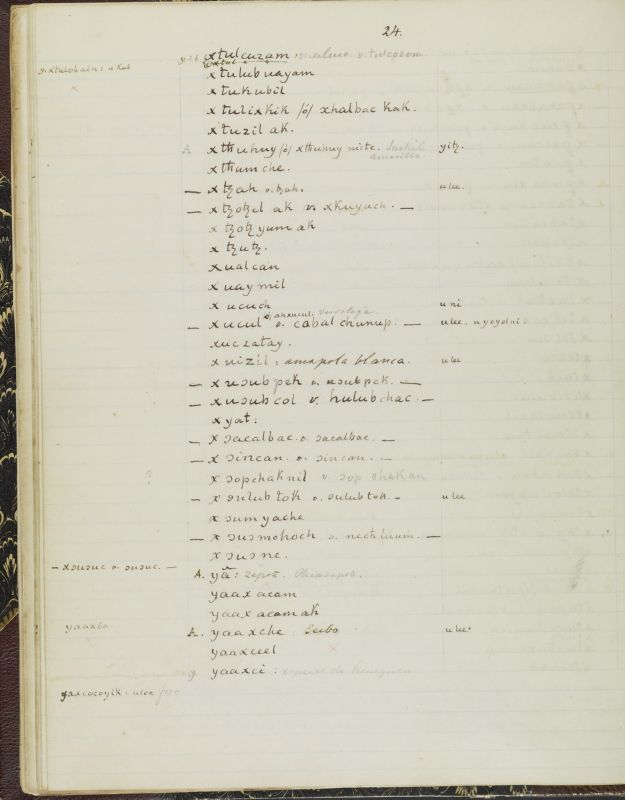 24.
xtulcuzam : o. tulcozom
y. xtulobain : u kab
xtulubuayam
xtukubil
xtulixkik /ó/ xhalbac kak.
xtuzil ak.
A xthuhuy /ó/ xthuhuy nicte. amarilla. yitz.
xthumche.
— xtzah o. tzah. u lee.
— xtzotzel ak v. xkuyach. —
x tzotzyum ak
x tzutz.
xualcan
x uay mil
x ucuch u ni
ó ahxucul. Verdolaga.
— xucul o. cabal chunup. — u lee. u yoyolni
xuczatay.
x uizil : amapola blanca. u lee
— x uɔubpek o. uɔubpek. —
— xuɔub col v. hulubchac. —
xyat :
— x ɔacalbac o. ɔacalbac. —
— x ɔincan o. ɔincan. —
x ɔopchaknil v. ɔop chakan
— x ɔulub tok o. ɔulub tok. — u lee
x ɔumyache
— x ɔuɔmohoch o. nechhuum. —
x ɔuɔ ne.
— xɔuɔuc o. ɔuɔuc. —
A. yā : zapote.
yaax acam
yaax acam ak
yaaxba.
A. yaaxche : Seibo u lee.
yaaxceel
y. yaaxci : de henequen
yaxcocoyik : u lee